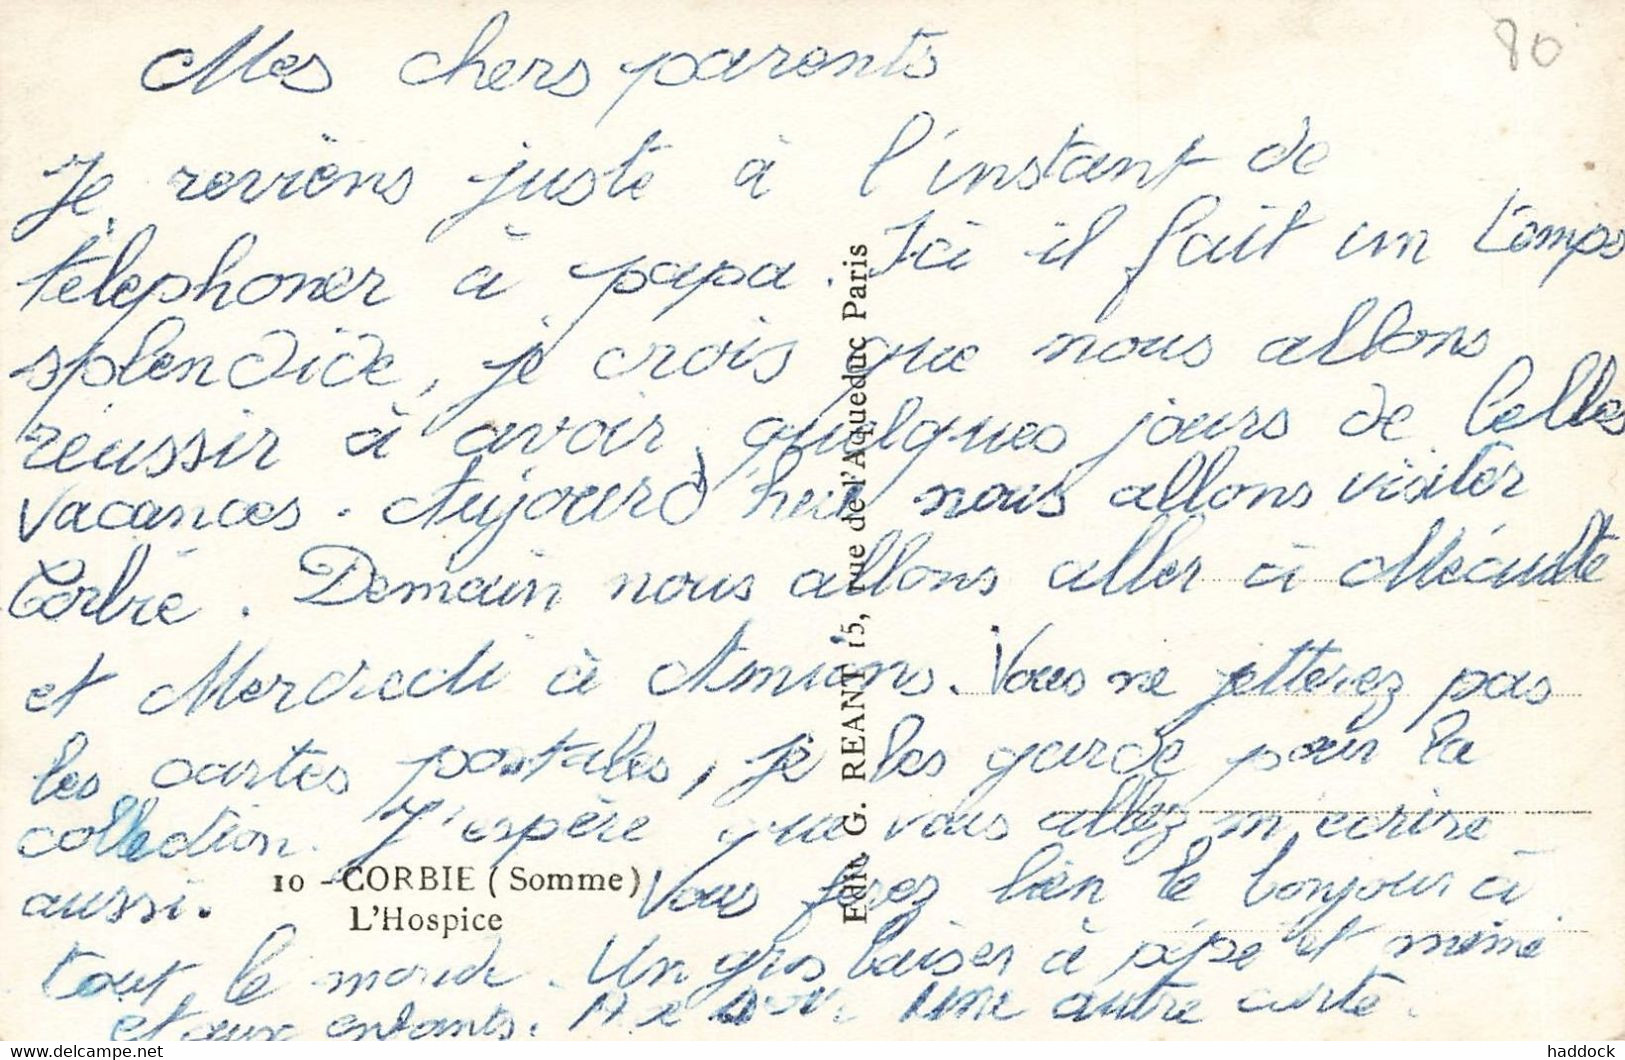 80
Mes chers parents
Je reviens juste à l'instant de
téléphoner à papa. Ici il fait un temps
splendide, je crois que nous allons
réussir à avoir quelques jours de belles
vacances. Aujourd'hui nous allons visiter
Corbie. Demain nous allons aller à Méaulte
et Mercredi à Amiens. Vous ne jetterez pas
les cartes postales, je les garde pour la
collection. J'espère que vous allez m'écrire
aussi. Vous ferez bien le bonjour à
tout le monde. Un gros baiser à pépé et mémé
et aux enfants. une autre carte.
10 - CORBIE (Somme)
L'Hospice
Edit. G. REANT 15, rue de l'Aqueduc Paris
delcampe.net
haddock